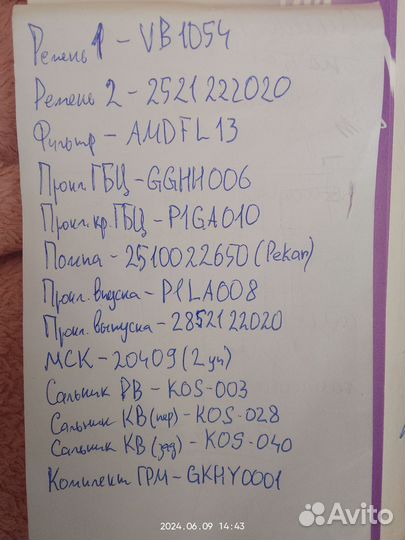 Ремень 1 - VB1054
Ремень 2 - 2521222020
Фильтр - AMDFL13
Прокл. ГБЦ - GGHH006
Прокл. кр. ГБЦ - P1GA010
Помпа - 2510022650 (Pekar)
Прокл. впуска - P1LA008
Прокл. выпуска - 2852122020
МСК - 20409 (2 уп)
Сальник РВ - KOS-003
Сальник КВ (пер) - KOS-028
Сальник КВ (зад) - KOS-040
Комплект ГРМ - GKHY0001
2024.06.09 14:43
Avito